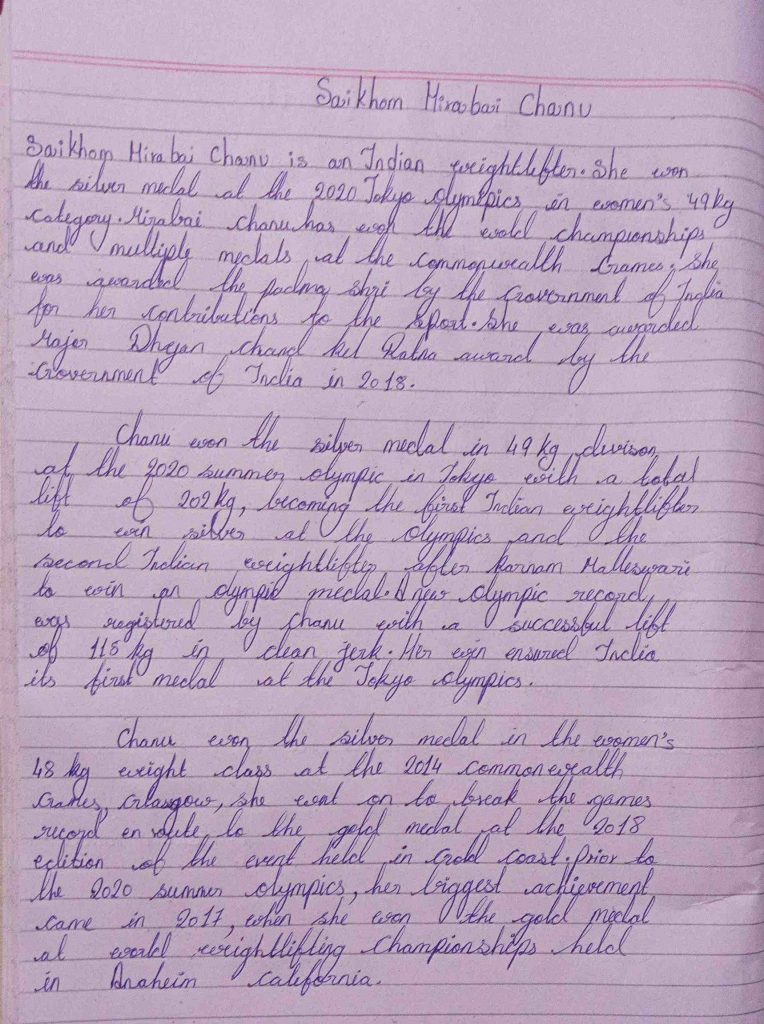 Saikhom Mirabai Chanu
Saikhom Mirabai Chanu is an Indian weightlifter. She won
the silver medal at the 2020 Tokyo olympics in women's 49kg
category. Mirabai chanu has won the world championships
and multiple medals at the commonwealth Games. She
was awarded the padma shri by the Government of India
for her contributions to the sport. She was awarded
Major Dhyan chand kel Ratna award by the
Government of India in 2018.
Chanu won the silver medal in 49 kg divison
at the 2020 summer olympic in Tokyo with a total
lift of 202kg, becoming the first Indian weightlifter
to win silver at the Olympics and the
second Indian weightlifter after Karnam Malleswari
to win an olympic medal. A new Olympic record
was registered by Chanu with a successful lift
of 115 kg in clean jerk. Her win ensured India
its first medal at the Tokyo Olympics.
Chanu won the silver medal in the women's
48 kg weight class at the 2014 commonwealth
Games, Glasgow, she went on to break the games
record en route to the gold medal at the 2018
edition of the event held in Gold coast. Prior to
the 2020 summer olympics, her biggest achievement
came in 2017, when she won the gold medal
at world weightlifting Championships held
in Anaheim California.